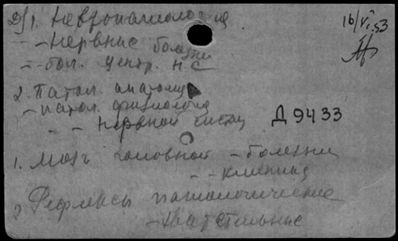 1. Невропатология
16/VI 53
- - Нервные болезни
- бол. центр. НС
2. Патол. анатомия
- патол. физиология
- - нервной систем
Д 9433
1. Мозг головной - болезни
- - клиника
2 Рефлексы патологические